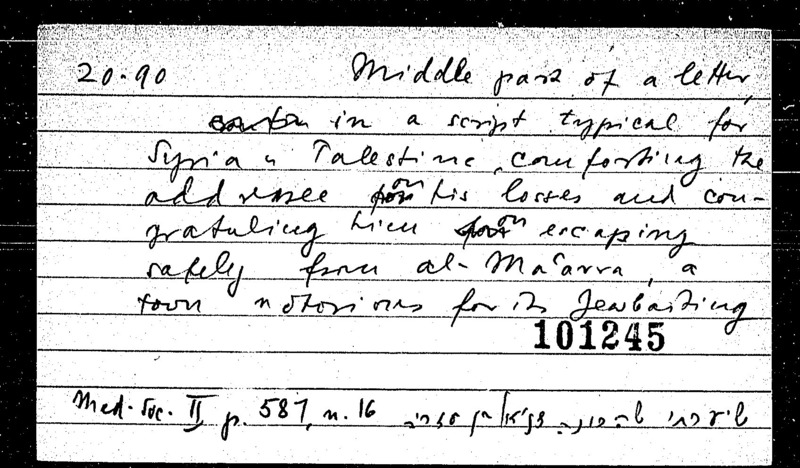 20.90 Middle part of a letter,
in a script typical for
Syria u Palestine, comforting the
addressee on his losses and con-
gratuling him on escaping
safely from al-Ma'arra, a
town notorious for its Jewbaiting
101245
Med. Soc. II p. 587, n. 16